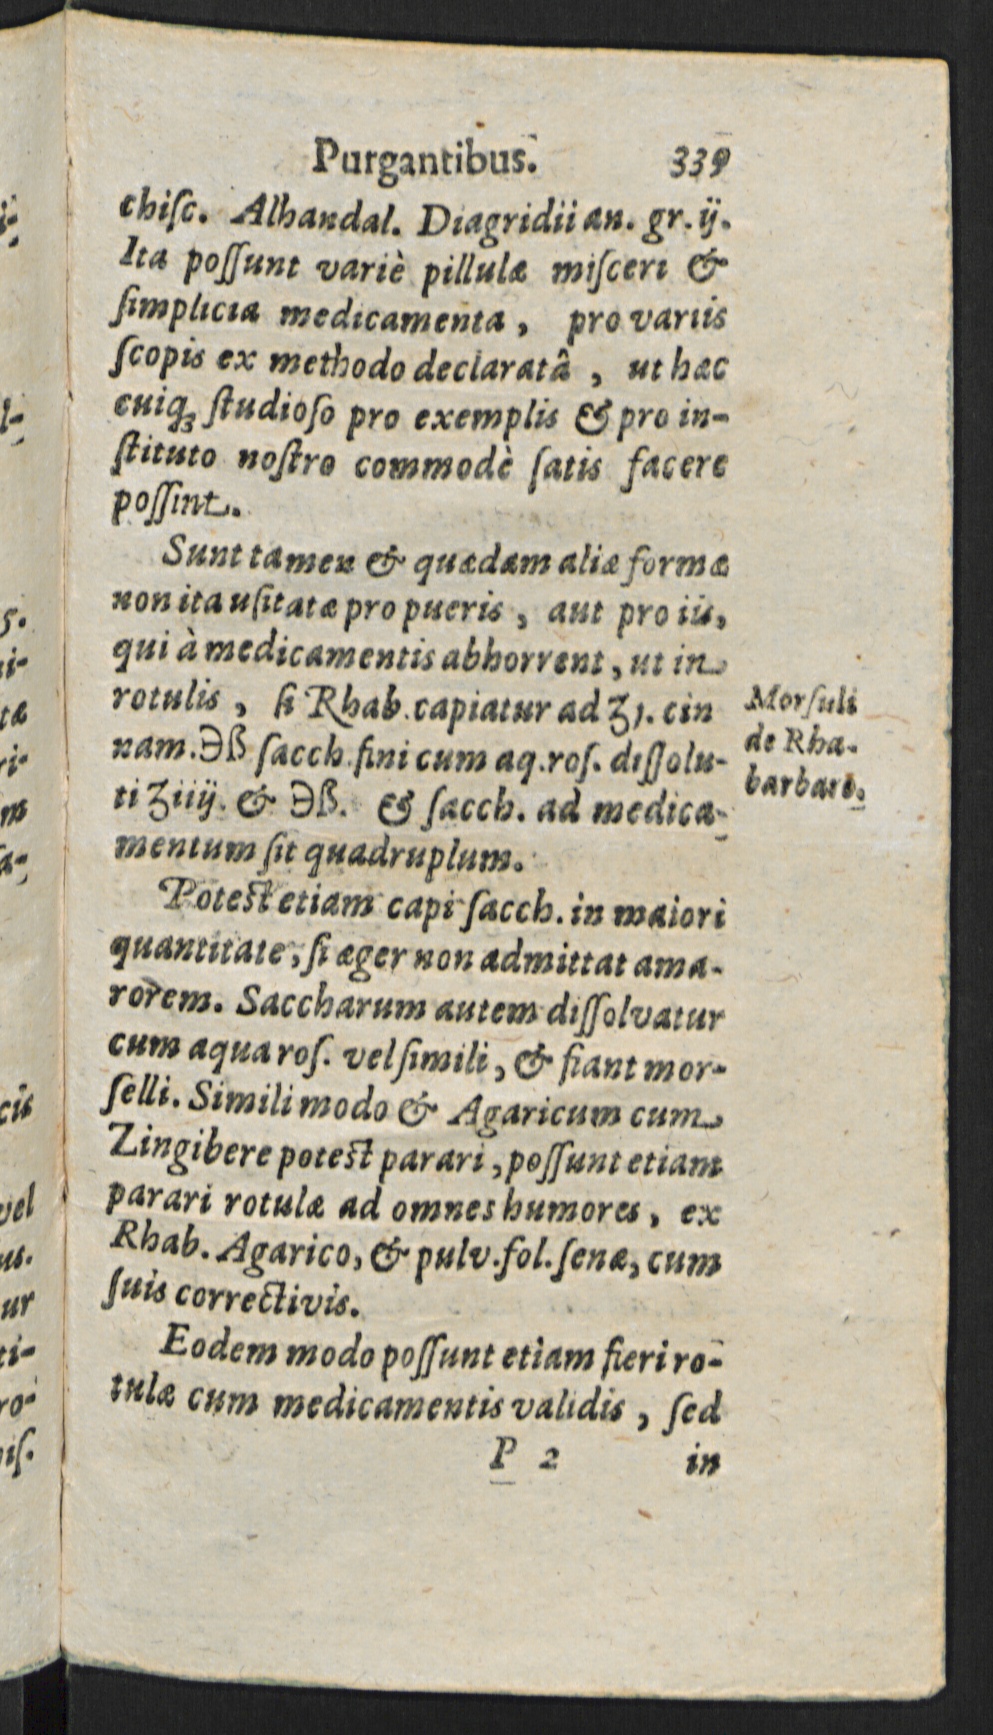 Purgantibus. 339
chiſc. Alhandal. Diagridii an. gr. ij.
Ita poſſunt variè pillulæ miſceri &
ſimplicia medicamenta, pro variis
ſcopis ex methodo declaratâ, ut hæc
cuiq; ſtudioſo pro exemplis & pro in-
ſtituto noſtro commodè ſatis facere
poſſint.
Sunt tamen & quædam aliæ formæ
non ita uſitatæ pro pueris, aut pro iis,
qui à medicamentis abhorrent, ut in
rotulis, ſi Rhab. capiatur ad ʒj. cin
nam. ℈ß ſacch. fini cum aq. roſ. diſſolu-
ti ʒiiij. & ℈ß. & ſacch. ad medica-
mentum ſit quadruplum.
Morſuli
de Rha-
barbaro.
Poteſt etiam capi ſacch. in maiori
quantitate, ſi æger non admittat ama-
rorem. Saccharum autem diſſolvatur
cum aqua roſ. vel ſimili, & fiant mor-
ſelli. Simili modo & Agaricum cum
Zingibere poteſt parari, poſſunt etiam
parari rotulæ ad omnes humores, ex
Rhab. Agarico, & pulv. fol. ſenæ, cum
ſuis correctivis.
Eodem modo poſſunt etiam fieri ro-
tulæ cum medicamentis validis, ſed
P 2 in